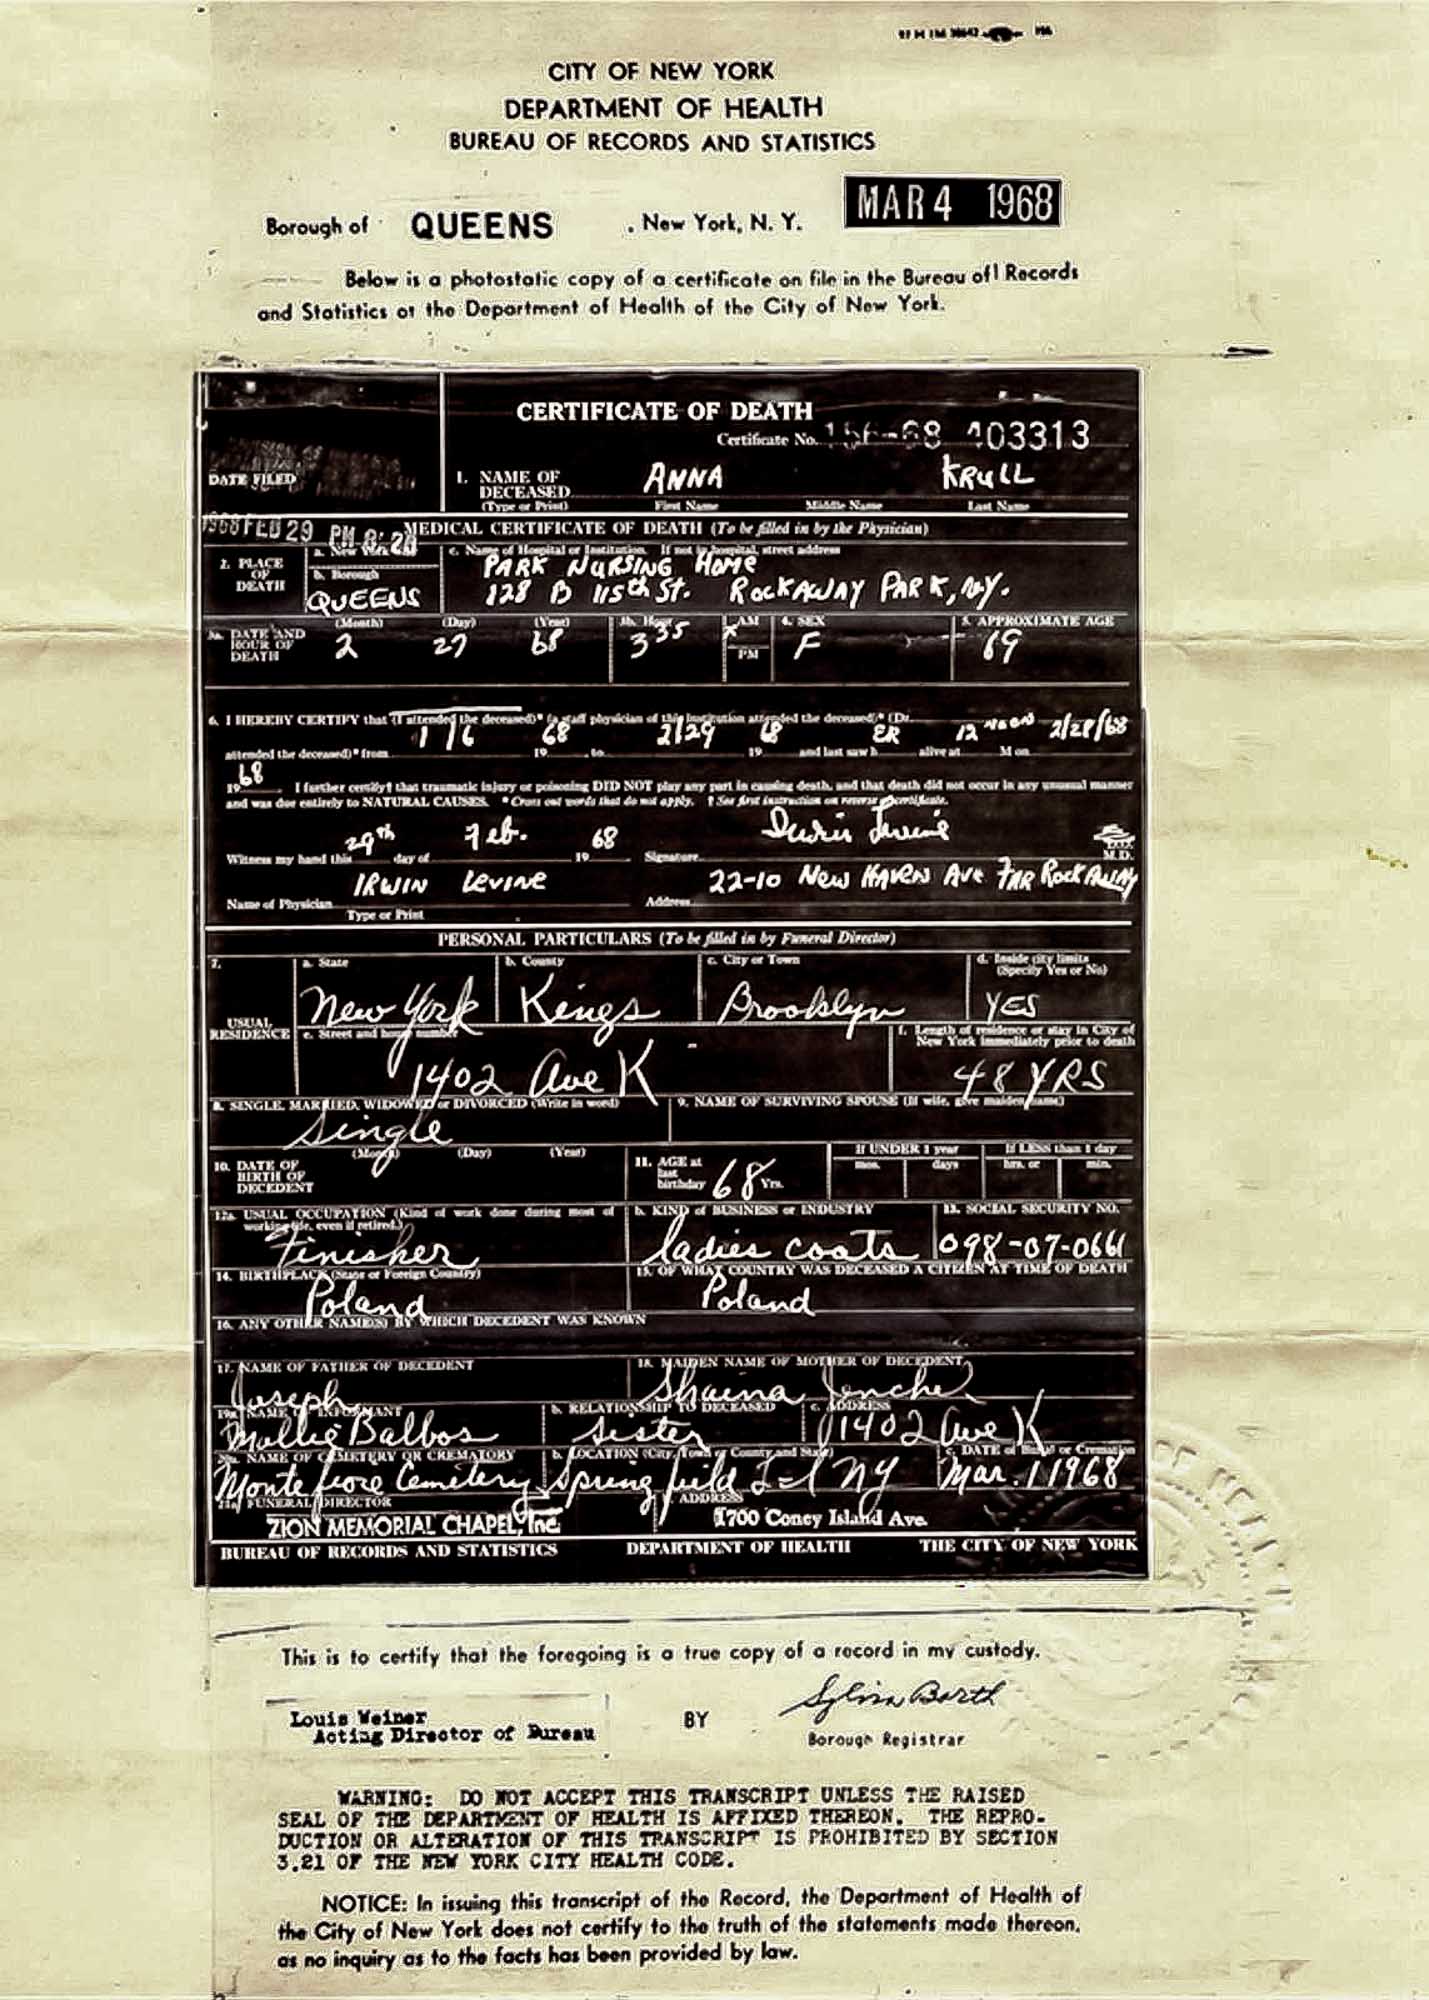 CITY OF NEW YORK
DEPARTMENT OF HEALTH
BUREAU OF RECORDS AND STATISTICS
Borough of QUEENS , New York, N. Y. MAR 4 1968
Below is a photostatic copy of a certificate on file in the Bureau of Records
and Statistics of the Department of Health of the City of New York.
CERTIFICATE OF DEATH
Certificate No. 156-68 403313
DATE FILED
1. NAME OF DECEASED (Type or Print) ANNA KRULL
First Name Middle Name Last Name
1968 FEB 29 PM 8:28
MEDICAL CERTIFICATE OF DEATH (To be filled in by the Physician)
2. PLACE OF DEATH
a. New York
b. Borough QUEENS
c. Name of Hospital or Institution. If not in hospital, street address
PARK NURSING HOME
128 B 115th St. ROCKAWAY PARK, NY.
3a. DATE AND HOUR OF DEATH (Month) 2 (Day) 27 (Year) 68 3b. Hour 3 35 X AM PM 4. SEX F 5. APPROXIMATE AGE 69
6. I HEREBY CERTIFY that (I attended the deceased)* (a staff physician of this institution attended the deceased)* (Dr.
1/6 68 2/29 68 ER 12 noon 2/28/68
attended the deceased)* from 19 to 19 and last saw h alive at M on
68
19 I further certify† that traumatic injury or poisoning DID NOT play any part in causing death, and that death did not occur in any unusual manner
and was due entirely to NATURAL CAUSES. * Cross out words that do not apply. † See first instruction on reverse of certificate.
29th Feb. 68 Irwin Levine
Witness my hand this day of 19 Signature D.O. M.D.
IRWIN LEVINE 22-10 NEW HAVEN AVE FAR ROCKAWAY
Name of Physician Address
Type or Print
PERSONAL PARTICULARS (To be filled in by Funeral Director)
7. USUAL RESIDENCE
a. State New York
b. County Kings
c. City or Town Brooklyn
d. Inside city limits (Specify Yes or No) YES
e. Street and house number 1402 Ave K
f. Length of residence or stay in City of New York immediately prior to death 48 YRS
8. SINGLE, MARRIED, WIDOWED or DIVORCED (Write in word) Single
9. NAME OF SURVIVING SPOUSE (If wife, give maiden name)
10. DATE OF BIRTH OF DECEDENT (Month) (Day) (Year)
11. AGE at last birthday 68 Yrs.
If UNDER 1 year mos. days
If LESS than 1 day hrs. or min.
12a. USUAL OCCUPATION (Kind of work done during most of working life, even if retired.) Finisher
b. KIND of BUSINESS or INDUSTRY ladies coats
13. SOCIAL SECURITY NO. 098-07-0661
14. BIRTHPLACE (State or Foreign Country) Poland
15. OF WHAT COUNTRY WAS DECEASED A CITIZEN AT TIME OF DEATH Poland
16. ANY OTHER NAME(S) BY WHICH DECEDENT WAS KNOWN
17. NAME OF FATHER OF DECEDENT Joseph
18. MAIDEN NAME OF MOTHER OF DECEDENT Shaina Jenche
19a. NAME OF INFORMANT Mollie Balbos
b. RELATIONSHIP TO DECEASED Sister
c. ADDRESS 1402 Ave K
20a. NAME OF CEMETERY OR CREMATORY Montefiore Cemetery
b. LOCATION (City, Town or County and State) Springfield L-I NY
c. DATE of Burial or Cremation Mar. 1 1968
21a. FUNERAL DIRECTOR ZION MEMORIAL CHAPEL, Inc.
ADDRESS 1700 Coney Island Ave.
BUREAU OF RECORDS AND STATISTICS DEPARTMENT OF HEALTH THE CITY OF NEW YORK
This is to certify that the foregoing is a true copy of a record in my custody.
Louis Weiner
Acting Director of Bureau
BY Sylvia Barth
Borough Registrar
WARNING: DO NOT ACCEPT THIS TRANSCRIPT UNLESS THE RAISED
SEAL OF THE DEPARTMENT OF HEALTH IS AFFIXED THEREON. THE REPRO-
DUCTION OR ALTERATION OF THIS TRANSCRIPT IS PROHIBITED BY SECTION
3.21 OF THE NEW YORK CITY HEALTH CODE.
NOTICE: In issuing this transcript of the Record, the Department of Health of
the City of New York does not certify to the truth of the statements made thereon,
as no inquiry as to the facts has been provided by law.